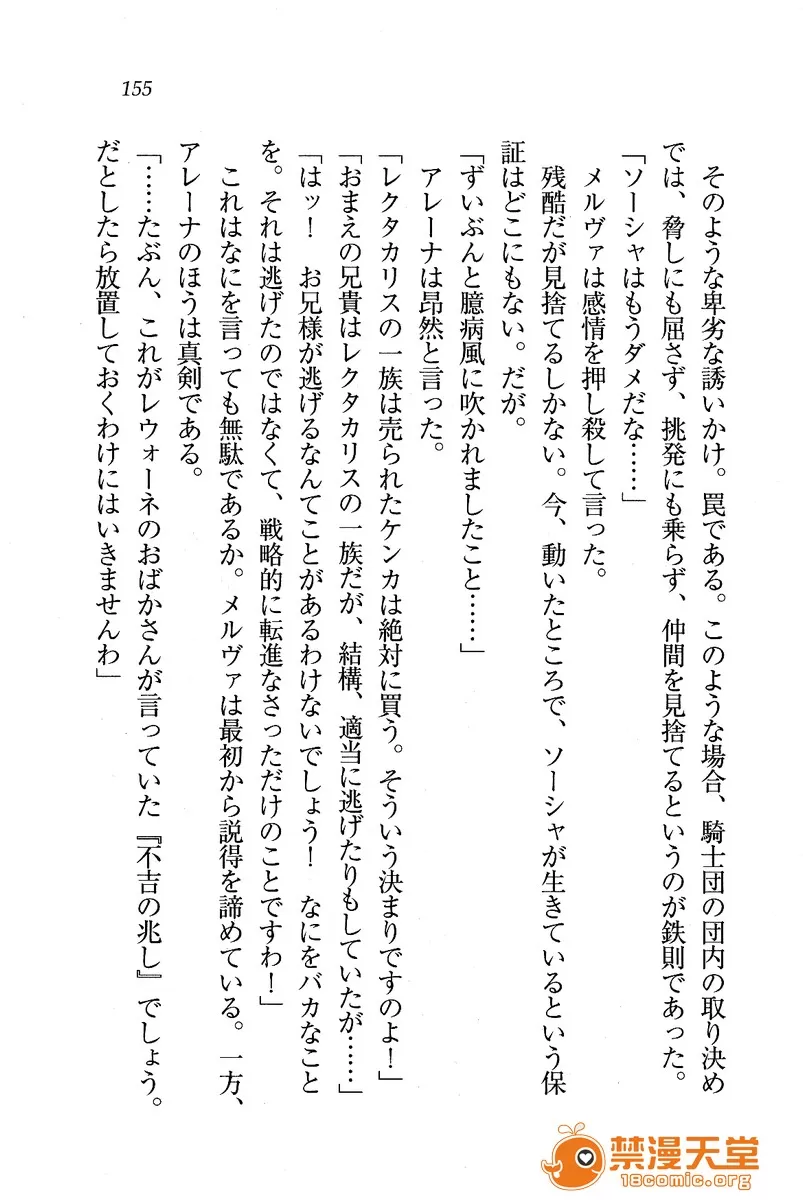 155
　そのような卑劣な誘いかけ。罠である。このような場合、騎士団の団内の取り決め
では、脅しにも屈さず、挑発にも乗らず、仲間を見捨てるというのが鉄則であった。
「ソーシャはもうダメだな……」
　メルヴァは感情を押し殺して言った。
　残酷だが見捨てるしかない。今、動いたところで、ソーシャが生きているという保
証はどこにもない。だが。
「ずいぶんと臆病風に吹かれましたこと……」
　アレーナは昂然と言った。
「レクタカリスの一族は売られたケンカは絶対に買う。そういう決まりですのよ！」
「おまえの兄貴はレクタカリスの一族だが、結構、適当に逃げたりもしていたが……」
「はッ！　お兄様が逃げるなんてことがあるわけないでしょう！　なにをバカなこと
を。それは逃げたのではなくて、戦略的に転進なさっただけのことですわ！」
　これはなにを言っても無駄であるか。メルヴァは最初から説得を諦めている。一方、
アレーナのほうは真剣である。
「……たぶん、これがレウォーネのおばかさんが言っていた『不吉の兆し』でしょう。
だとしたら放置しておくわけにはいきませんわ」
禁漫天堂
18comic.org